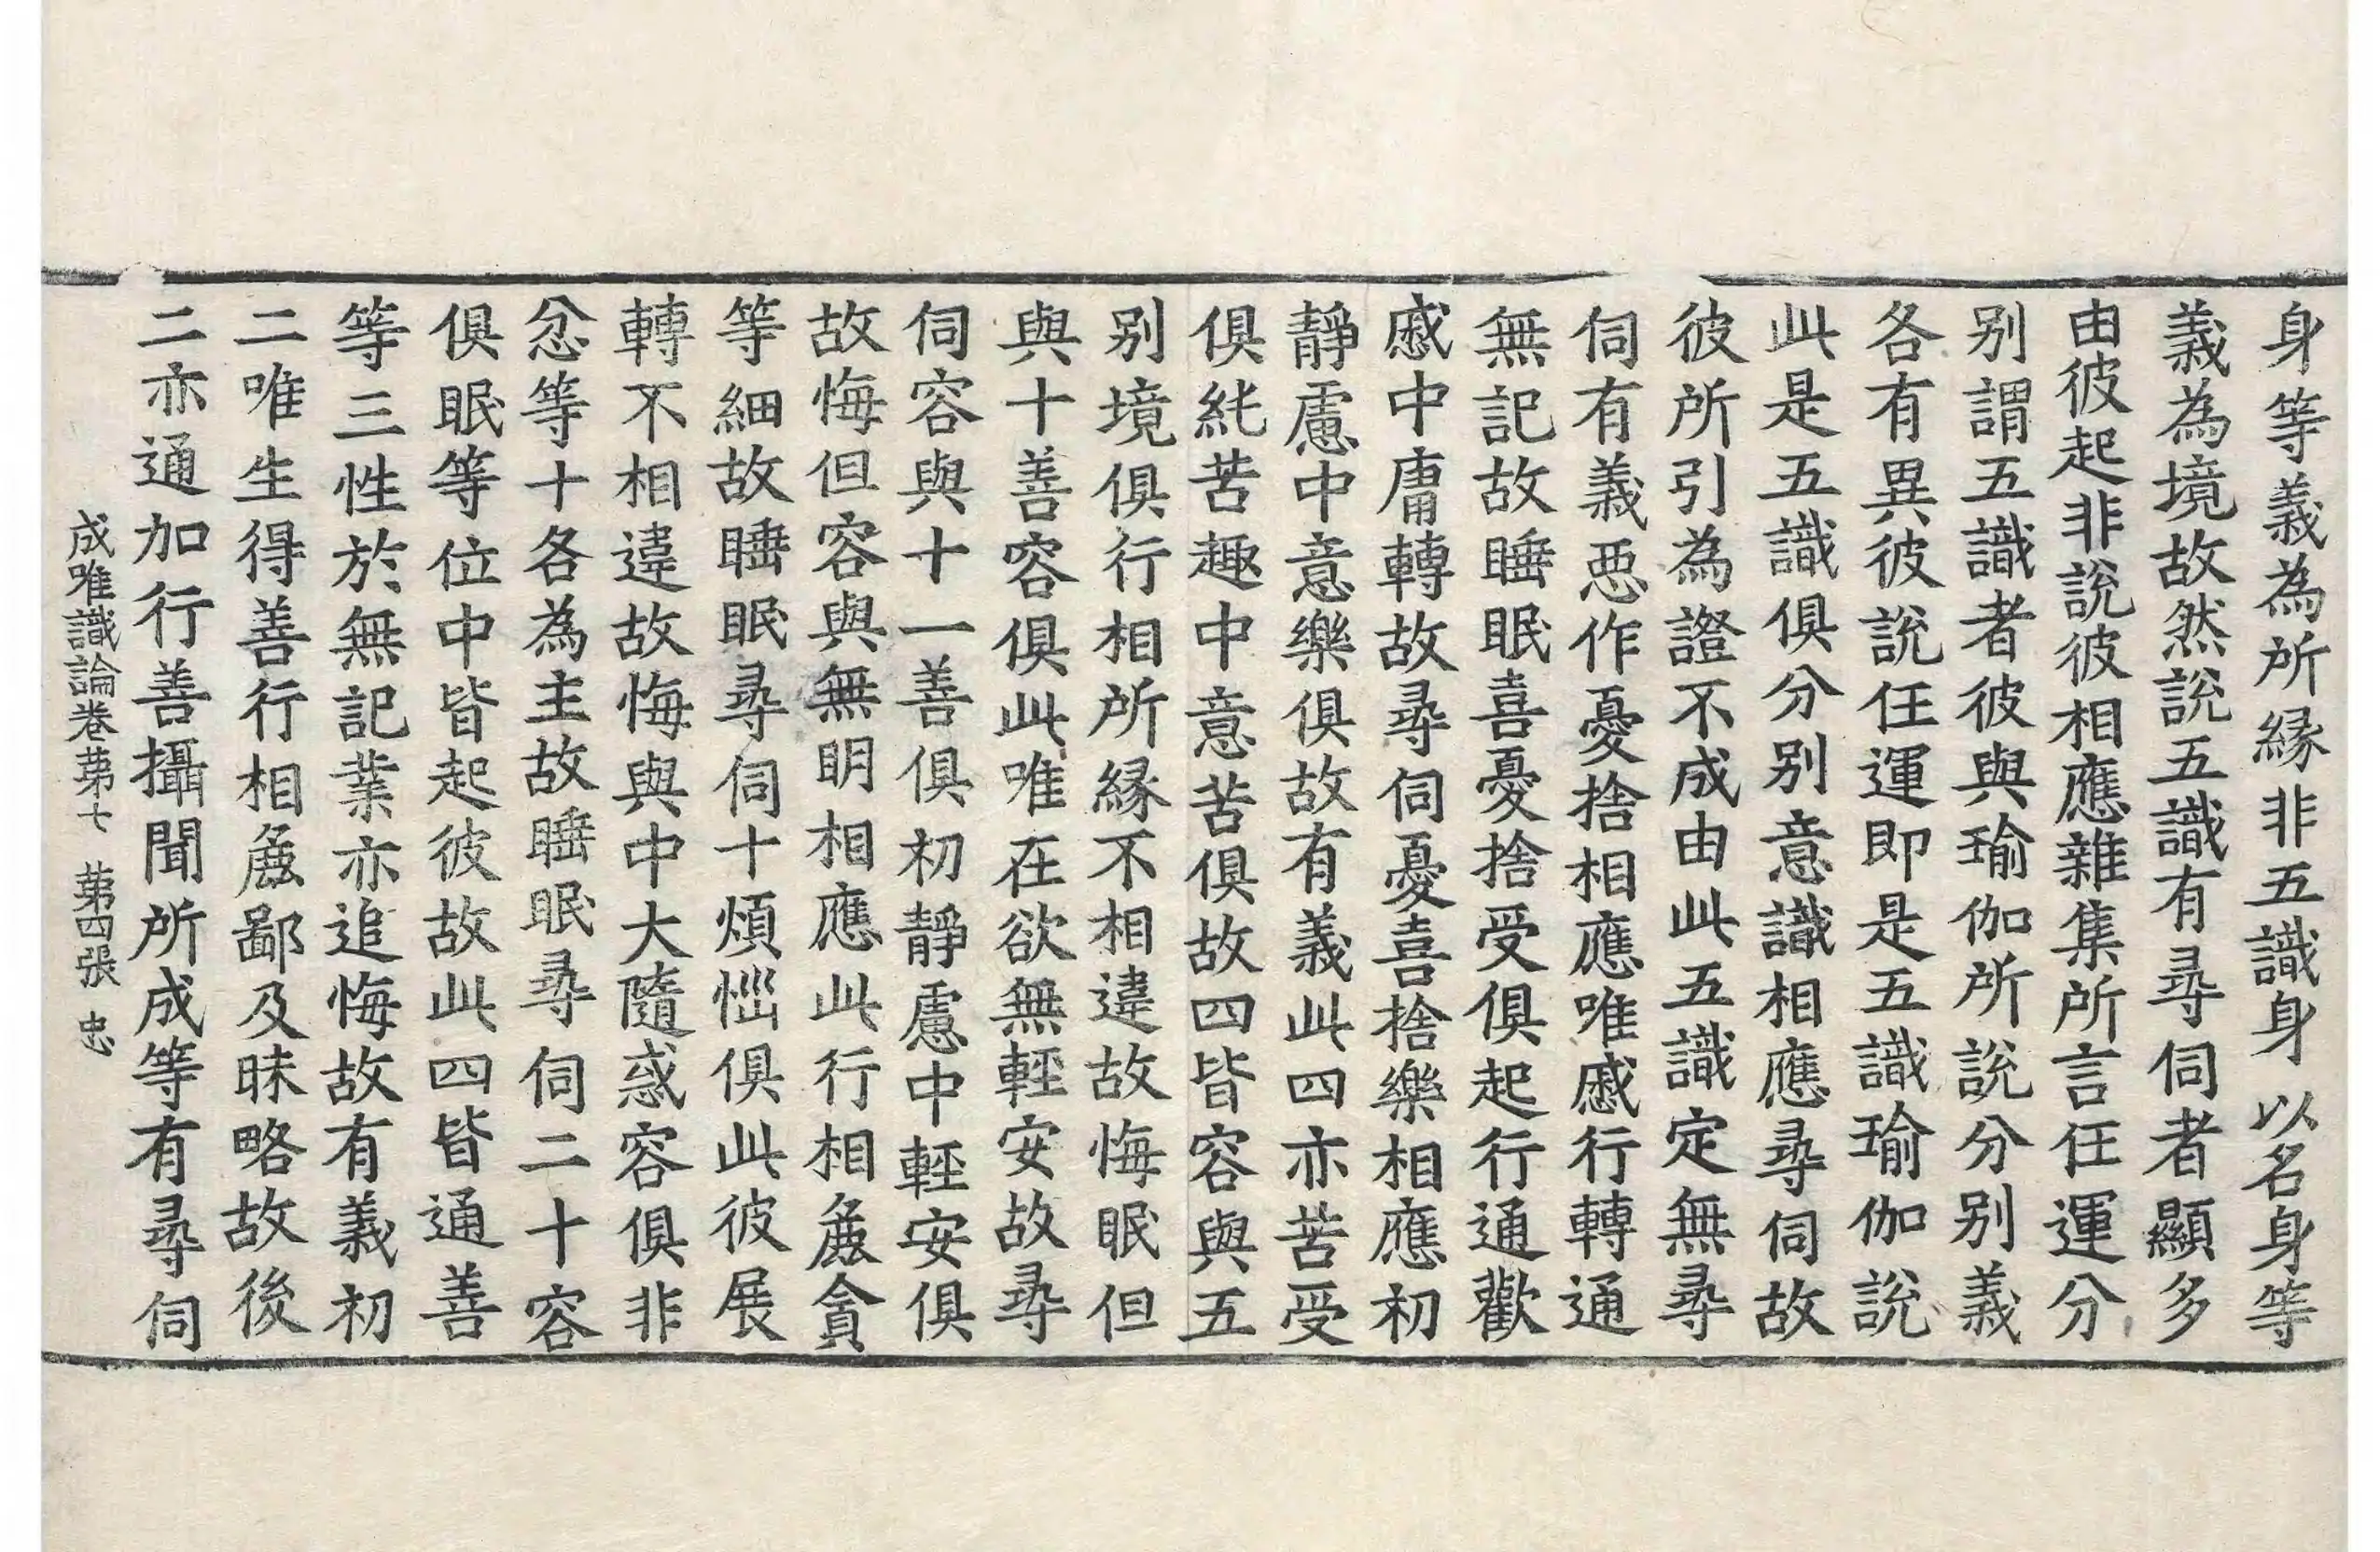 身等義為所縁非五識身以名身等
義為境故然說五識有尋伺者顯多
由彼起非說彼相應雜集所言任運分
别謂五識者彼與瑜伽所說分别義
各有異彼說任運即是五識瑜伽說
此是五識俱分别意識相應尋伺故
彼所引為證不成由此五識定無尋
伺有義惡作憂捨相應唯慼行轉通
無記故睡眠喜憂捨受俱起行通歡
慼中庸轉故尋伺憂喜捨樂相應初
靜慮中意樂俱故有義此四亦苦受
俱純苦趣中意苦俱故四皆容與五
别境俱行相所縁不相違故悔眠但
與十善容俱此唯在欲無輕安故尋
伺容與十一善俱初靜慮中輕安俱
故悔但容與無明相應此行相麁貪
等細故睡眠尋伺十煩惱俱此彼展
轉不相違故悔與中大隨惑容俱非
忿等十各為主故睡眠尋伺二十容
俱眠等位中皆起彼故此四皆通善
等三性於無記業亦追悔故有義初
二唯生得善行相麁鄙及昧略故後
二亦通加行善攝聞所成等有尋伺
成唯識論卷苐七 苐四張 忠